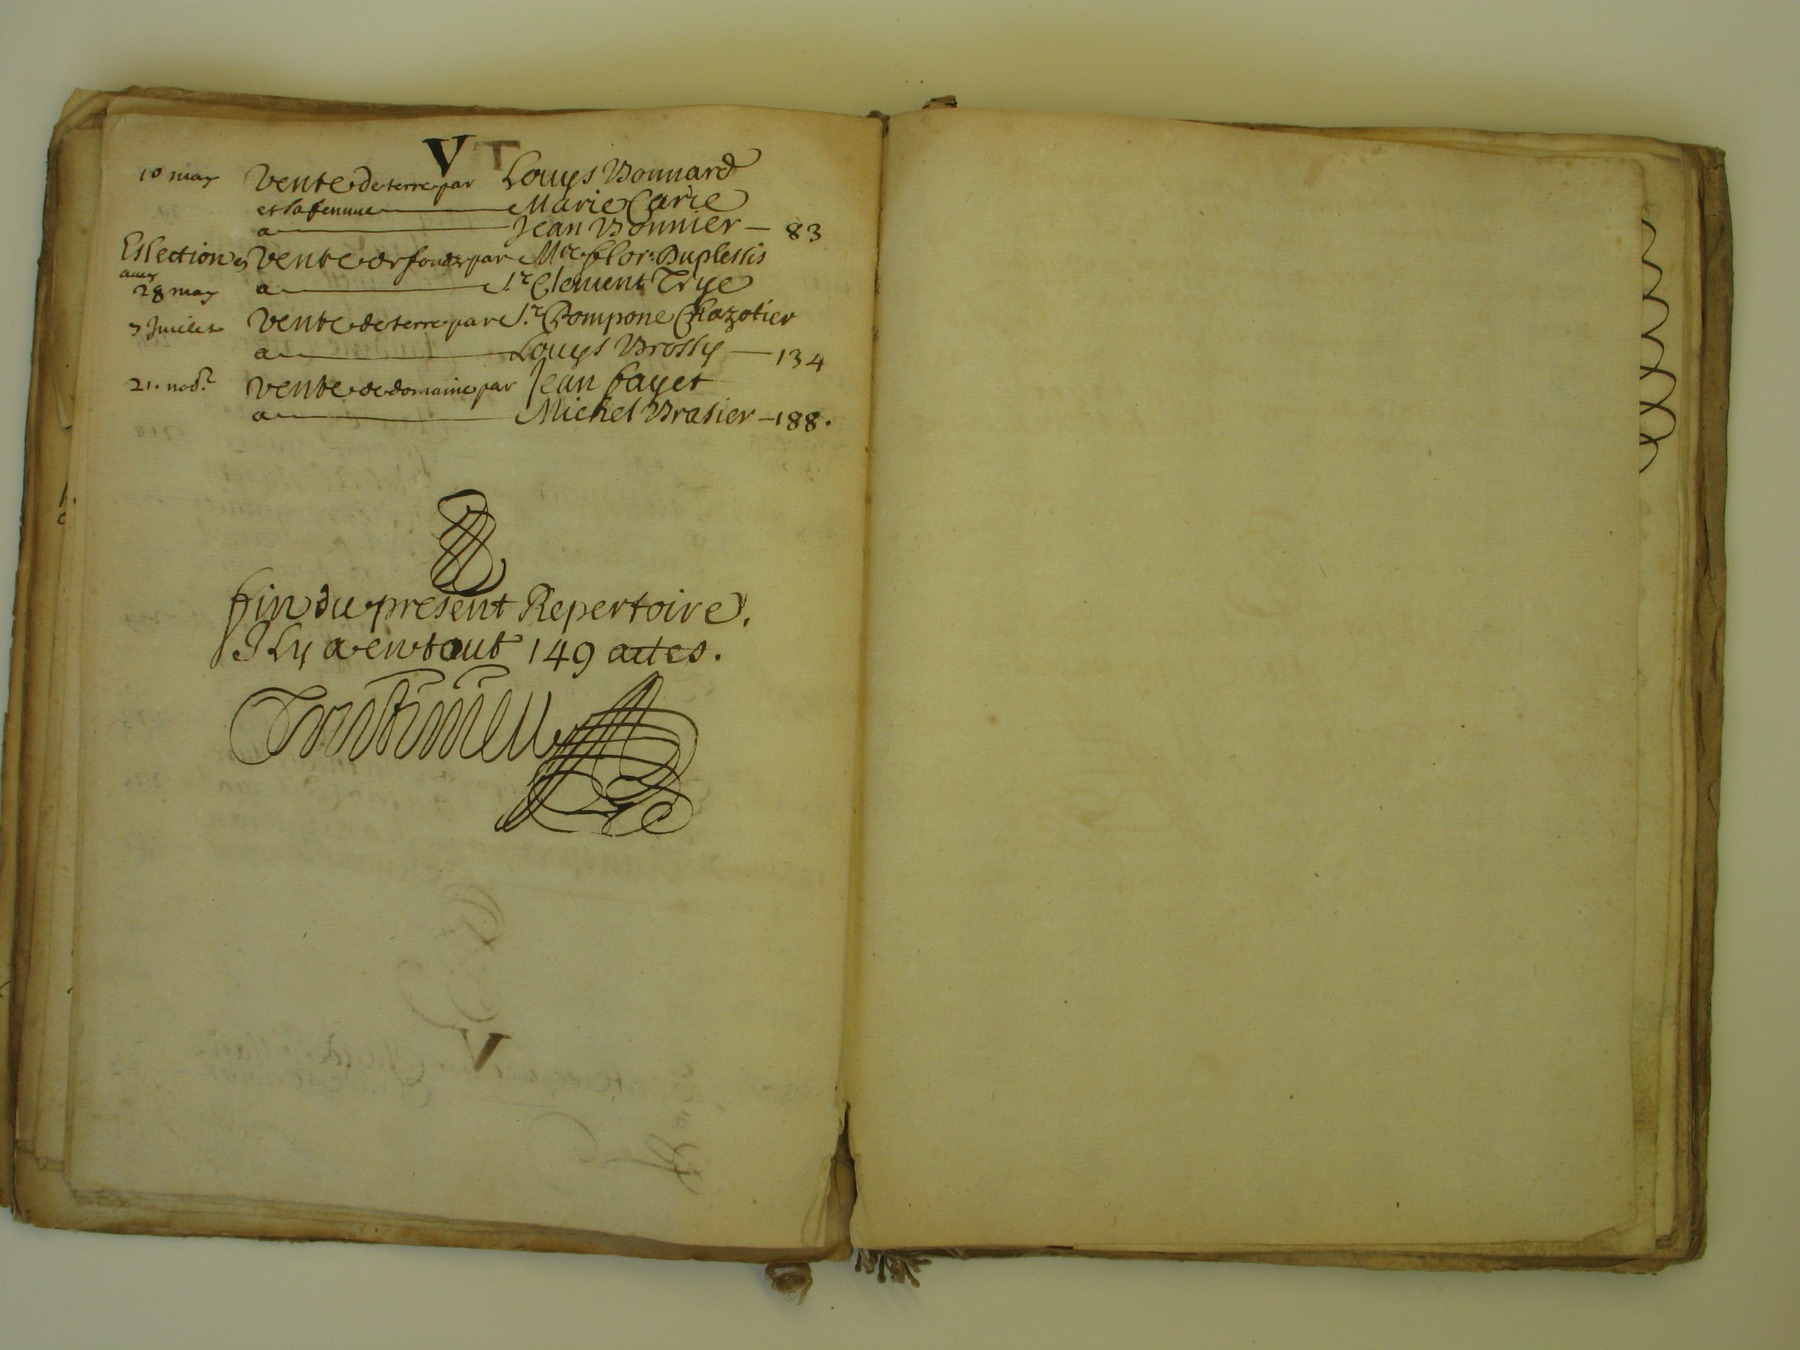 V T
10 may vente de terre par Louys Bonnard
et sa femme Marie Carie
a Jean Bonnier — 83
Eslection en vente de fondz par Mre flor: Duplessis
amy
28 may a Sr Clement Trye
7 Juillet vente de terre par Sr. Pompone Chazotier
a Louys Brossy — 134
21. nov.e vente de domaine par Jean fayet
a Michel Brasier — 188.
fin du present Repertoire.
Il y a en tout 149 actes.
V